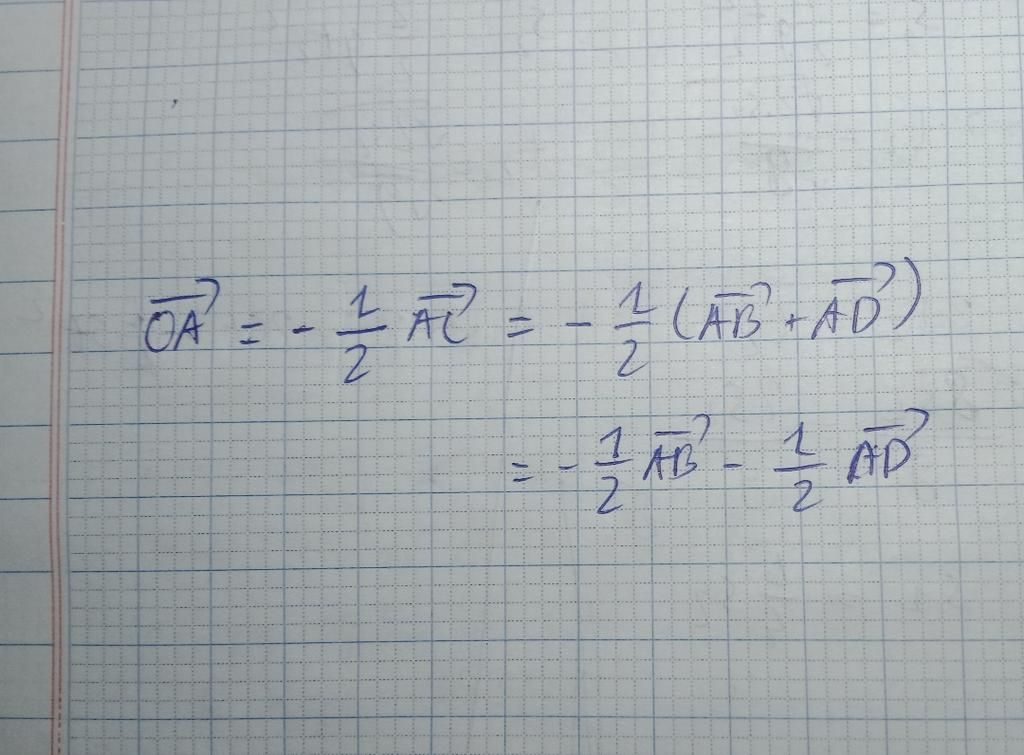 $\overrightarrow{OA} = -\frac{1}{2} \overrightarrow{AC} = -\frac{1}{2} (\overrightarrow{AB} + \overrightarrow{AD})$
$= -\frac{1}{2} \overrightarrow{AB} - \frac{1}{2} \overrightarrow{AD}$